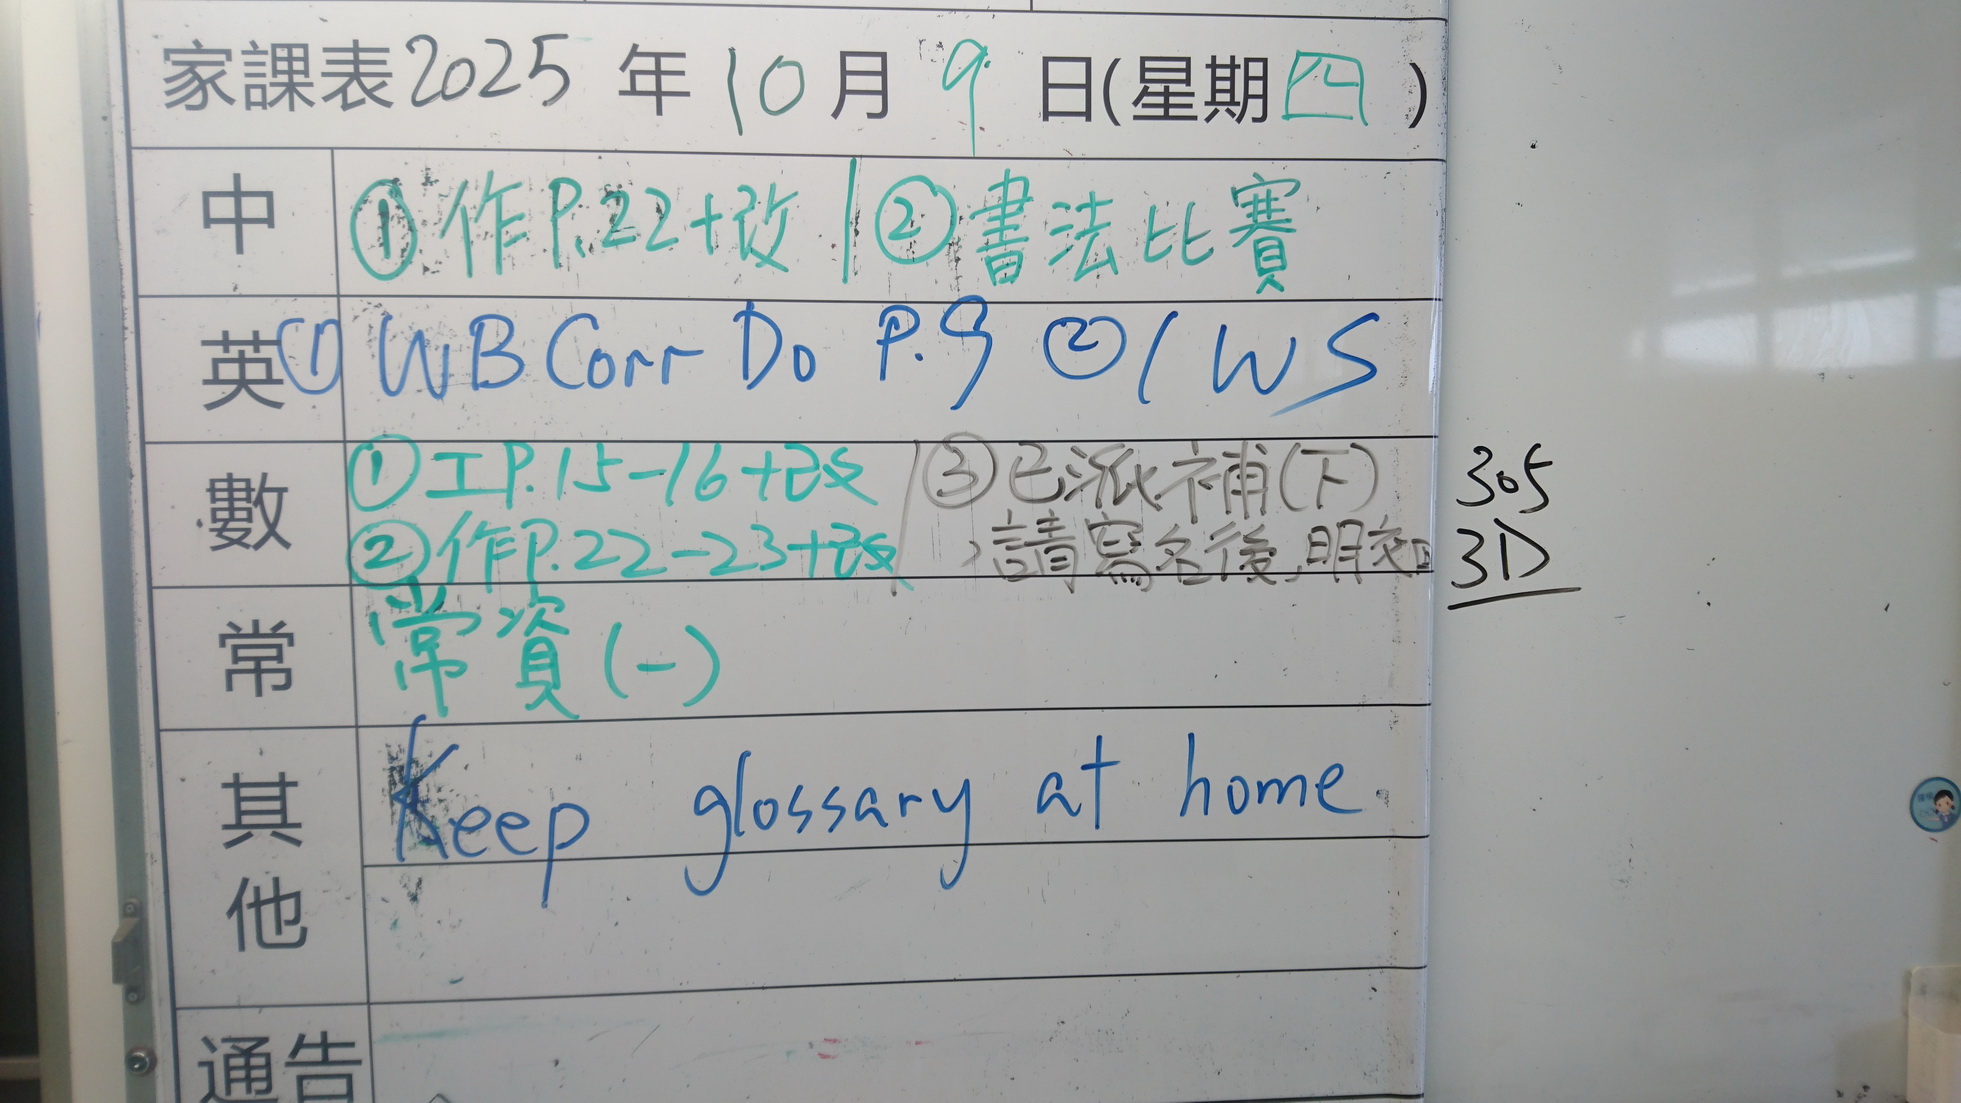 家課表2025年10月9日(星期四)
中 ①作P.22+改 | ②書法比賽
英 ① WB Corr Do P.9 ②/ WS
數 ①工P.15-16+改 / ③已派補(下)
②作P.22-23+改 ,請寫名後,明交回
305
3D
常 常資(一)
其他 Keep glossary at home.
通告